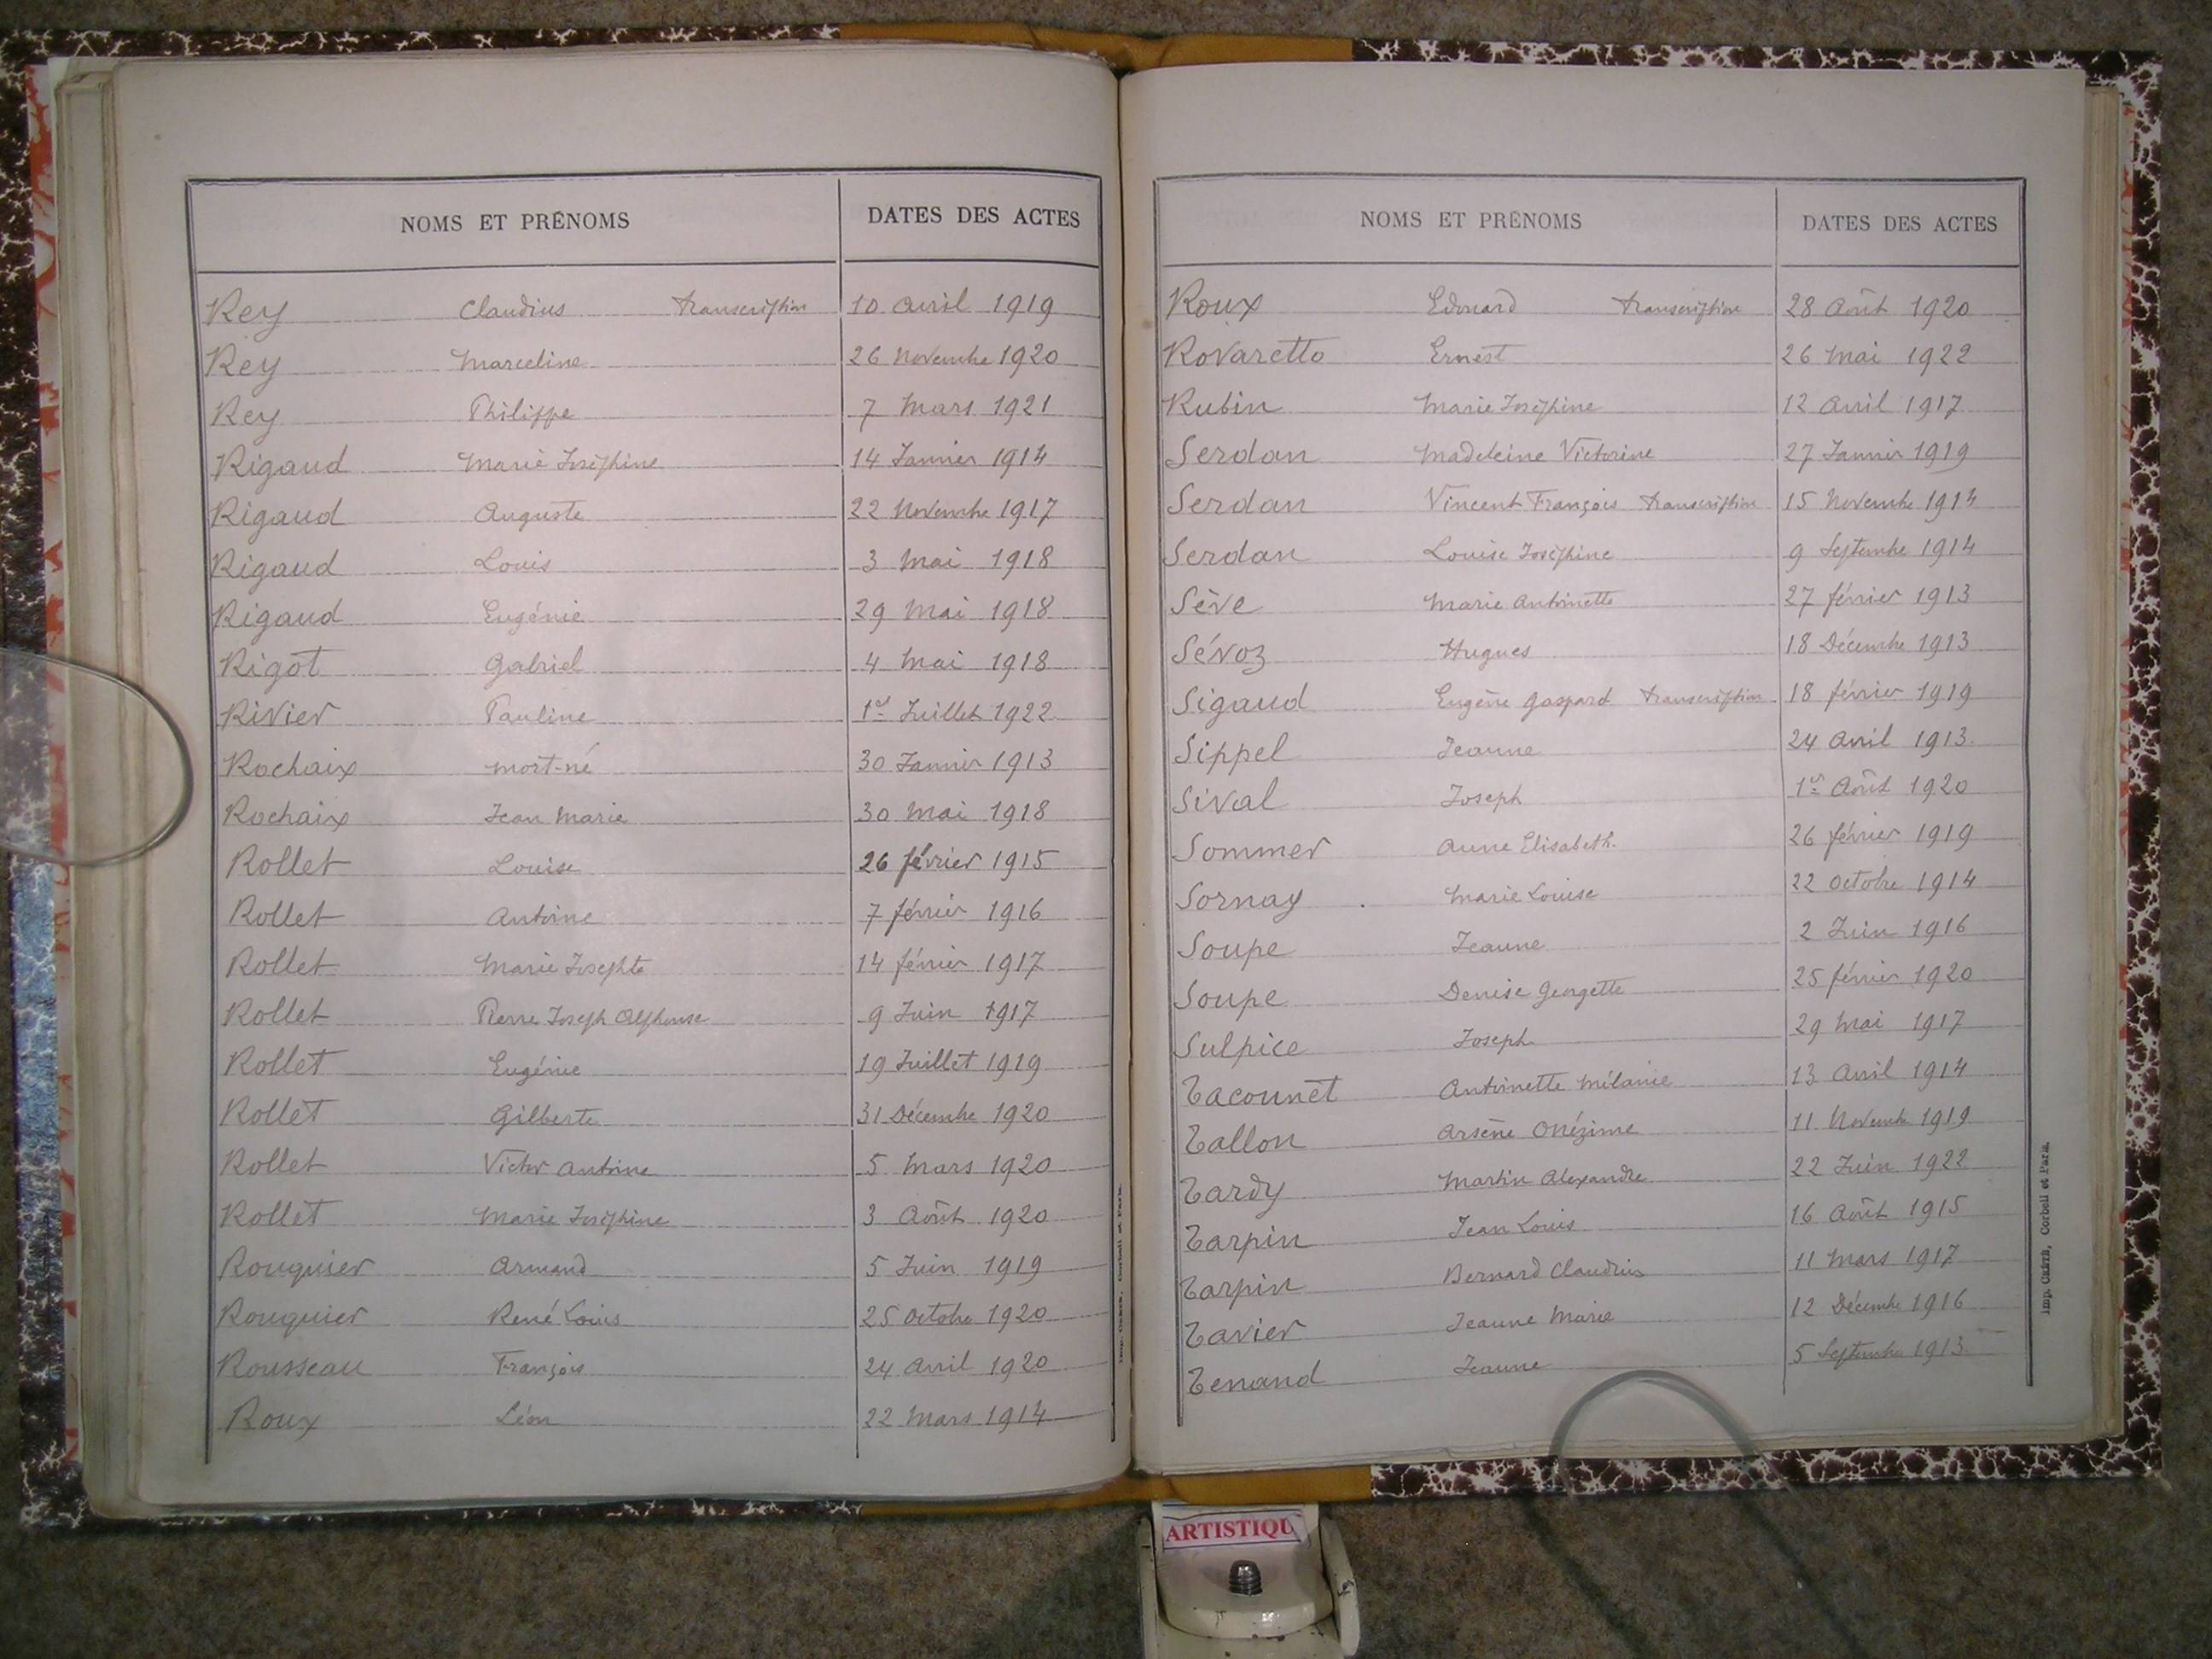 NOMS ET PRÉNOMS DATES DES ACTES
Rey Claudius transcription 10 Avril 1919
Rey Marceline 26 Novembre 1920
Rey Philippe 7 Mars 1921
Rigaud Marie Joséphine 14 Janvier 1914
Rigaud Auguste 22 Novembre 1917
Rigaud Louis 3 Mai 1918
Rigaud Eugénie 29 Mai 1918
Rigot Gabriel 4 Mai 1918
Rivier Pauline 1er Juillet 1922
Rochaix mort-né 30 Janvier 1913
Rochaix Jean Marie 30 Mai 1918
Rollet Louise 26 février 1915
Rollet Antoine 7 février 1916
Rollet Marie Josephte 14 février 1917
Rollet Pierre Joseph Alphonse 9 Juin 1917
Rollet Eugénie 19 Juillet 1919
Rollet Gilberte 31 Décembre 1920
Rollet Victor Antoine 5 Mars 1920
Rollet Marie Joséphine 3 Août 1920
Rouquier Armand 5 Juin 1919
Rouquier René Louis 25 Octobre 1920
Rousseau François 24 Avril 1920
Roux Léon 22 Mars 1914
NOMS ET PRÉNOMS DATES DES ACTES
Roux Edouard transcription 28 Août 1920
Rovaretto Ernest 26 Mai 1922
Rubin Marie Joséphine 12 Avril 1917
Serdan Madeleine Victorine 27 Janvier 1919
Serdan Vincent François transcription 15 Novembre 1914
Serdan Louise Joséphine 9 Septembre 1914
Sève Marie Antoinette 27 février 1913
Sévoz Hugues 18 Décembre 1913
Sigaud Eugène Gaspard transcription 18 février 1919
Sippel Jeanne 24 Avril 1913
Sival Joseph 1er Août 1920
Sommer Anne Elisabeth 26 février 1919
Sornay Marie Louise 22 Octobre 1914
Soupe Jeanne 2 Juin 1916
Soupe Denise Georgette 25 février 1920
Sulpice Joseph 29 Mai 1917
Tacounet Antoinette Mélanie 13 Avril 1914
Tallon Arsène Onézime 11 Novembre 1919
Tardy Martin Alexandre 22 Juin 1922
Tarpin Jean Louis 16 Août 1915
Tarpin Bernard Claudius 11 Mars 1917
Tavier Jeanne Marie 12 Décembre 1916
Tenand Jeanne 5 Septembre 1913
Corbeil et Paris.
Imp. Corbeil et Paris.
ARTISTIQU